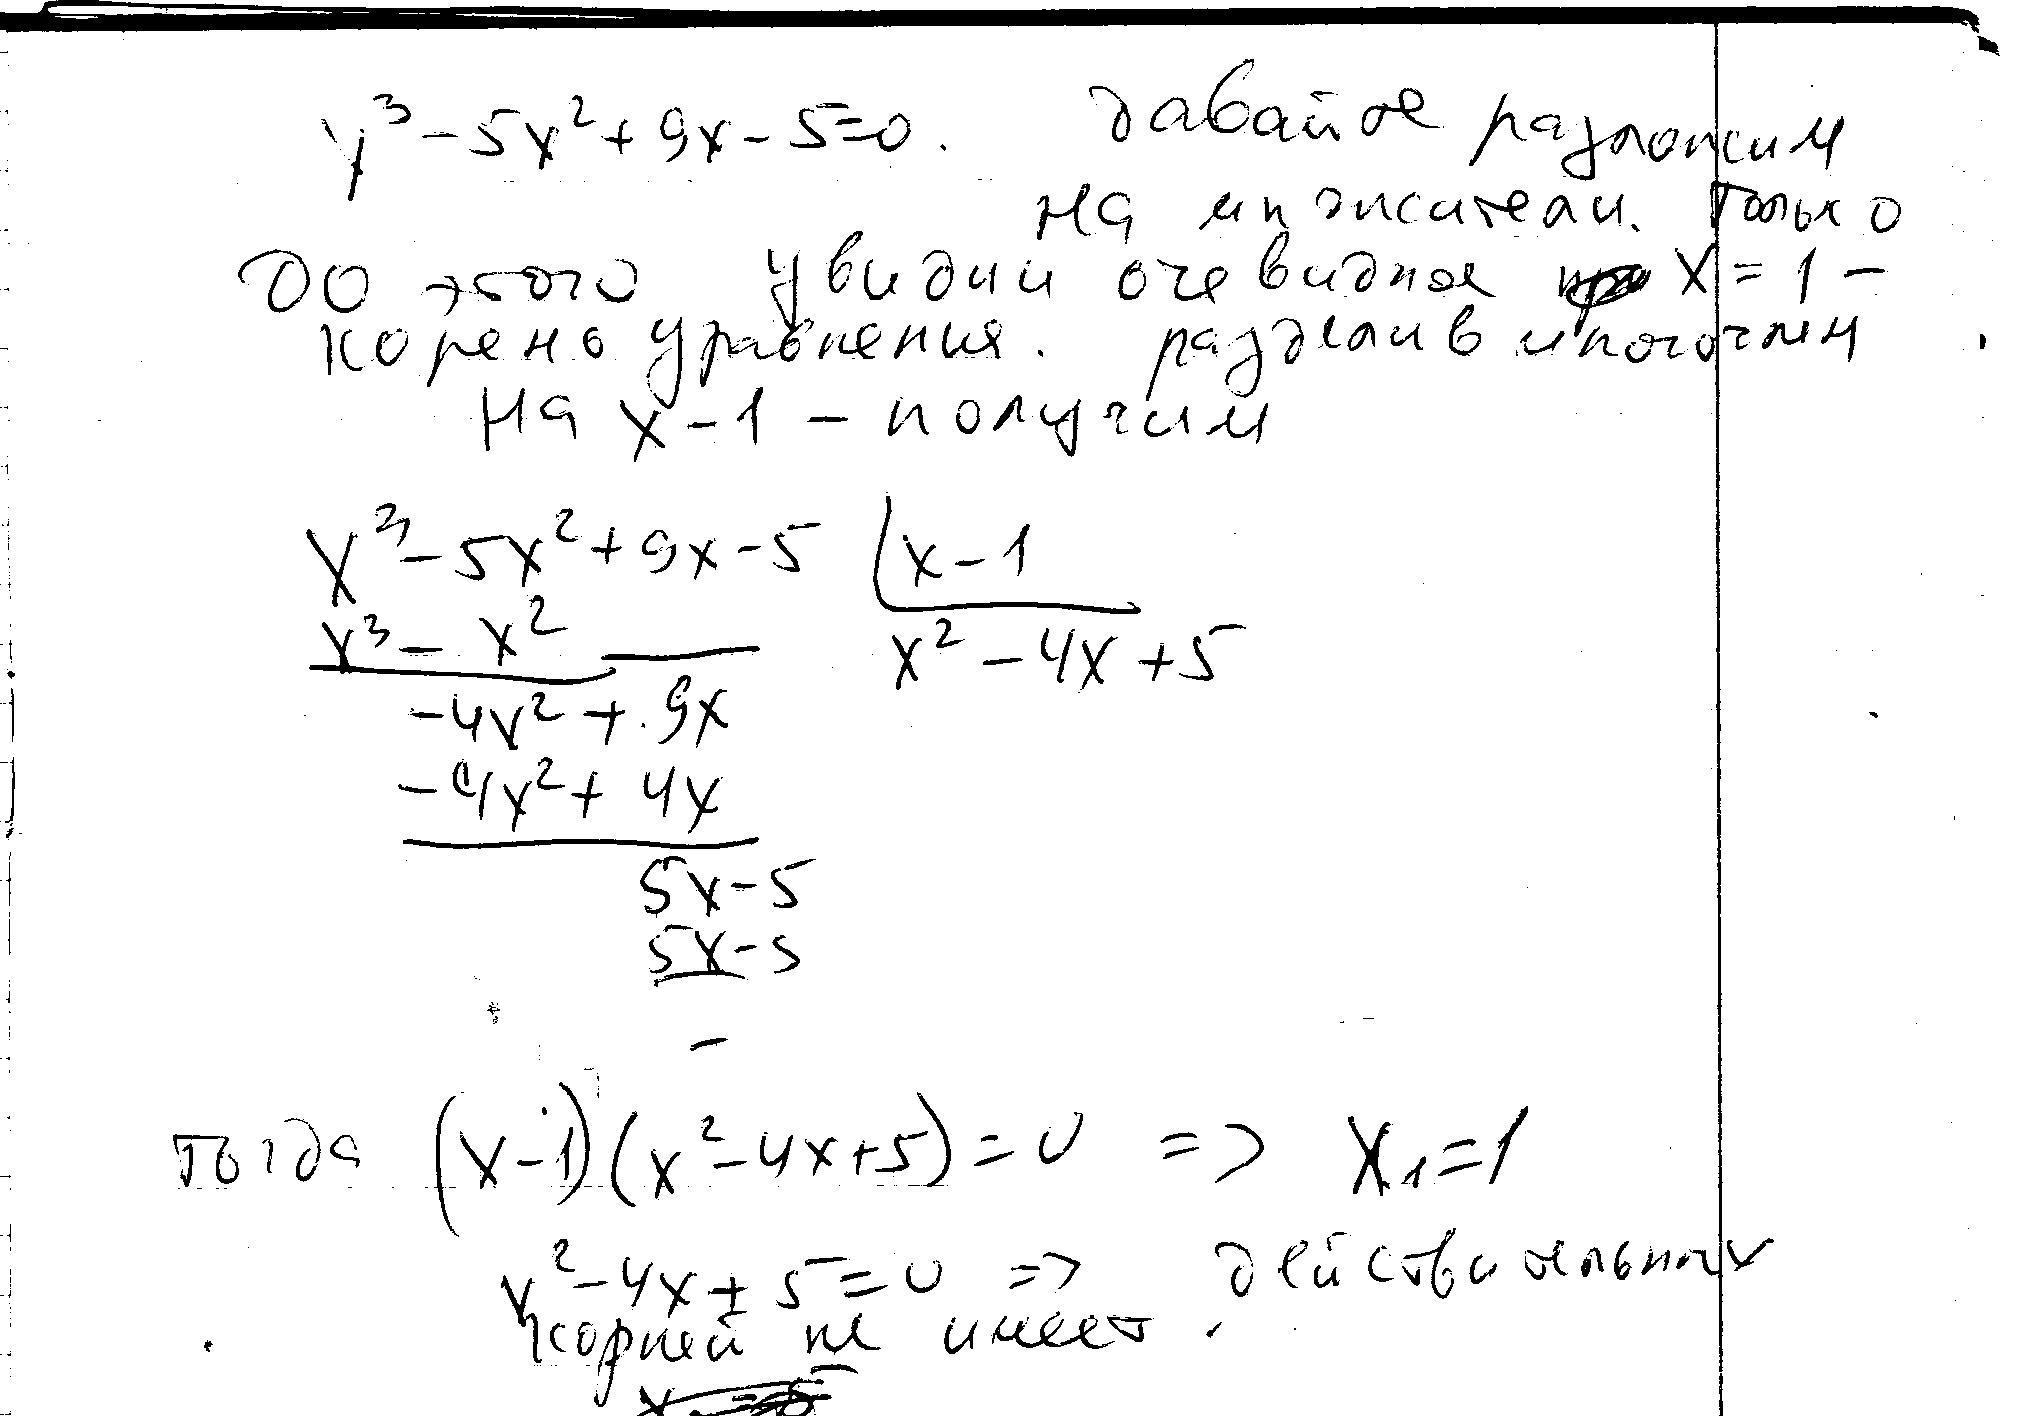 x³ - 5x² + 9x - 5 = 0. давайте разложим
на множители. только
до этого увидим очевидное x = 1 -
корень уравнения. разделив многочлен
на x - 1 - получим
x³ - 5x² + 9x - 5 | x - 1
x³ - x²
x² - 4x + 5
-4x² + 9x
-4x² + 4x
5x - 5
5x - 5
-
тогда (x - 1)(x² - 4x + 5) = 0 => x₁ = 1
x² - 4x + 5 = 0 => действительных
корней не имеет.